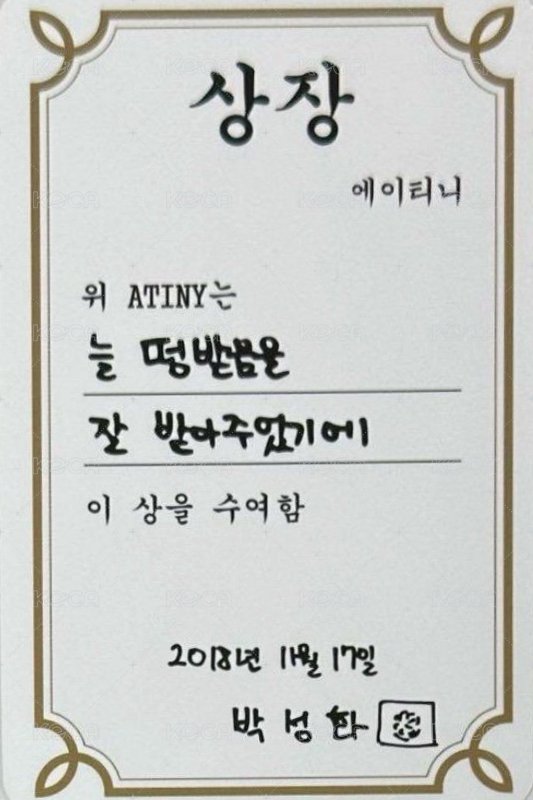 상장
에이티니
위 ATINY는
늘 떵받믐을
잘 받아주었기에
이 상을 수여함
2018년 11월 17일
박성화